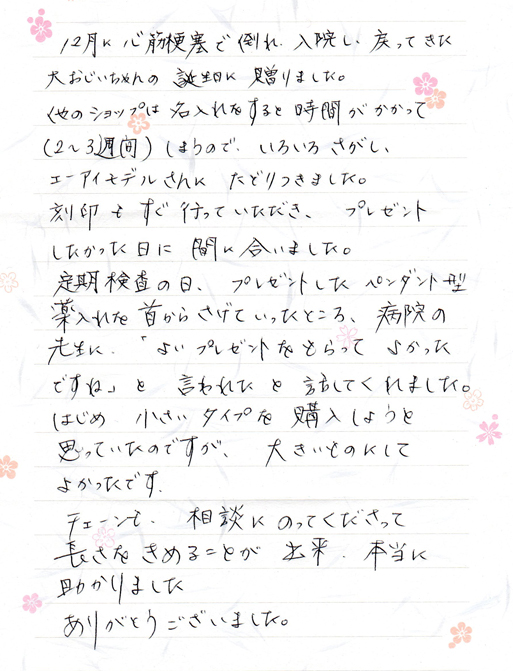 12月に心筋梗塞で倒れ入院し、戻ってきた
大おじいちゃんの誕生日に贈りました。
他のショップは名入れをすると時間がかかって
(2〜3週間)しまうので、いろいろさがし、
エーアイモデルさんにたどりつきました。
刻印もすぐ行っていただき、プレゼント
したかった日に間に合いました。
定期検査の日、プレゼントしたペンダント型
薬入れを首からさげていったところ、病院の
先生に、「よいプレゼントをもらってよかった
ですね」と言われたと話してくれました。
はじめ小さいタイプを購入しようと
思っていたのですが、大きいものにして
よかったです。
チェーンも、相談にのってくださって
長さをきめることが出来、本当に
助かりました
ありがとうございました。